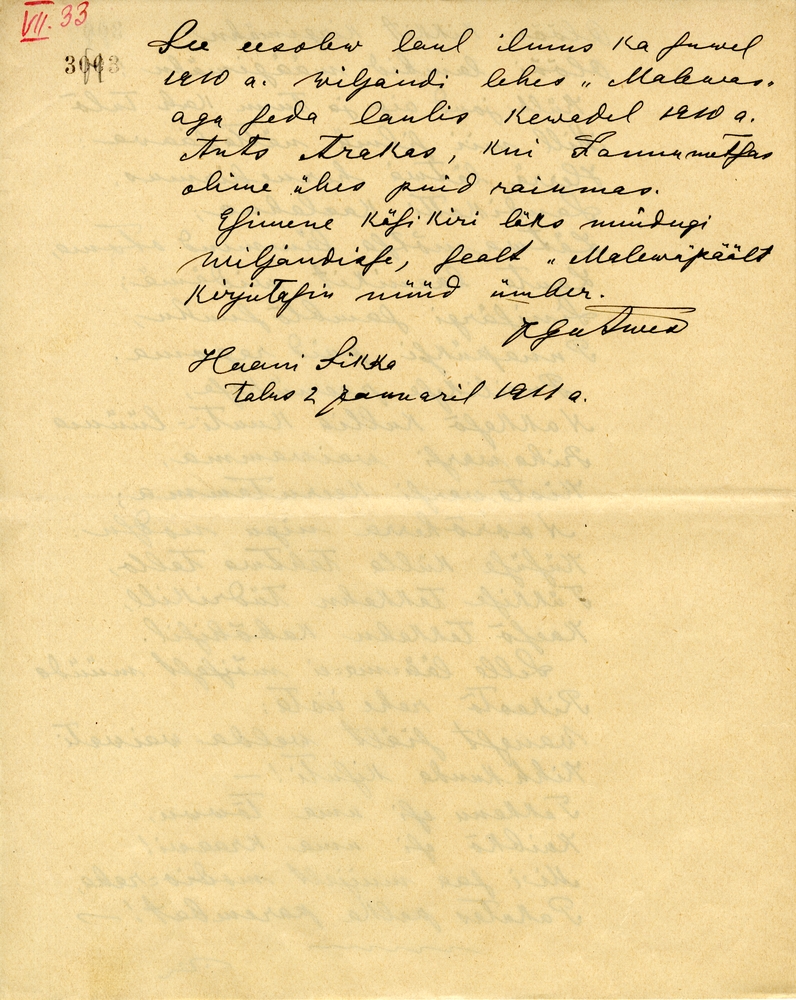 VII. 33
3003
See eesolew laul ilmus ka suwel
1910 a. Wiljandi lehes „Malewas"
aga seda laulis kewadel 1910 a.
Ants Arakas, kui Kannumetsas
olime ühes puid raiumas.
Esimene käsikiri läks muidugi
Wiljandisse, sealt „Malewäpäält
Kirjutasin nüüd ümber.
Haani Sikka
talus 2 jaanuaril 1911 a.